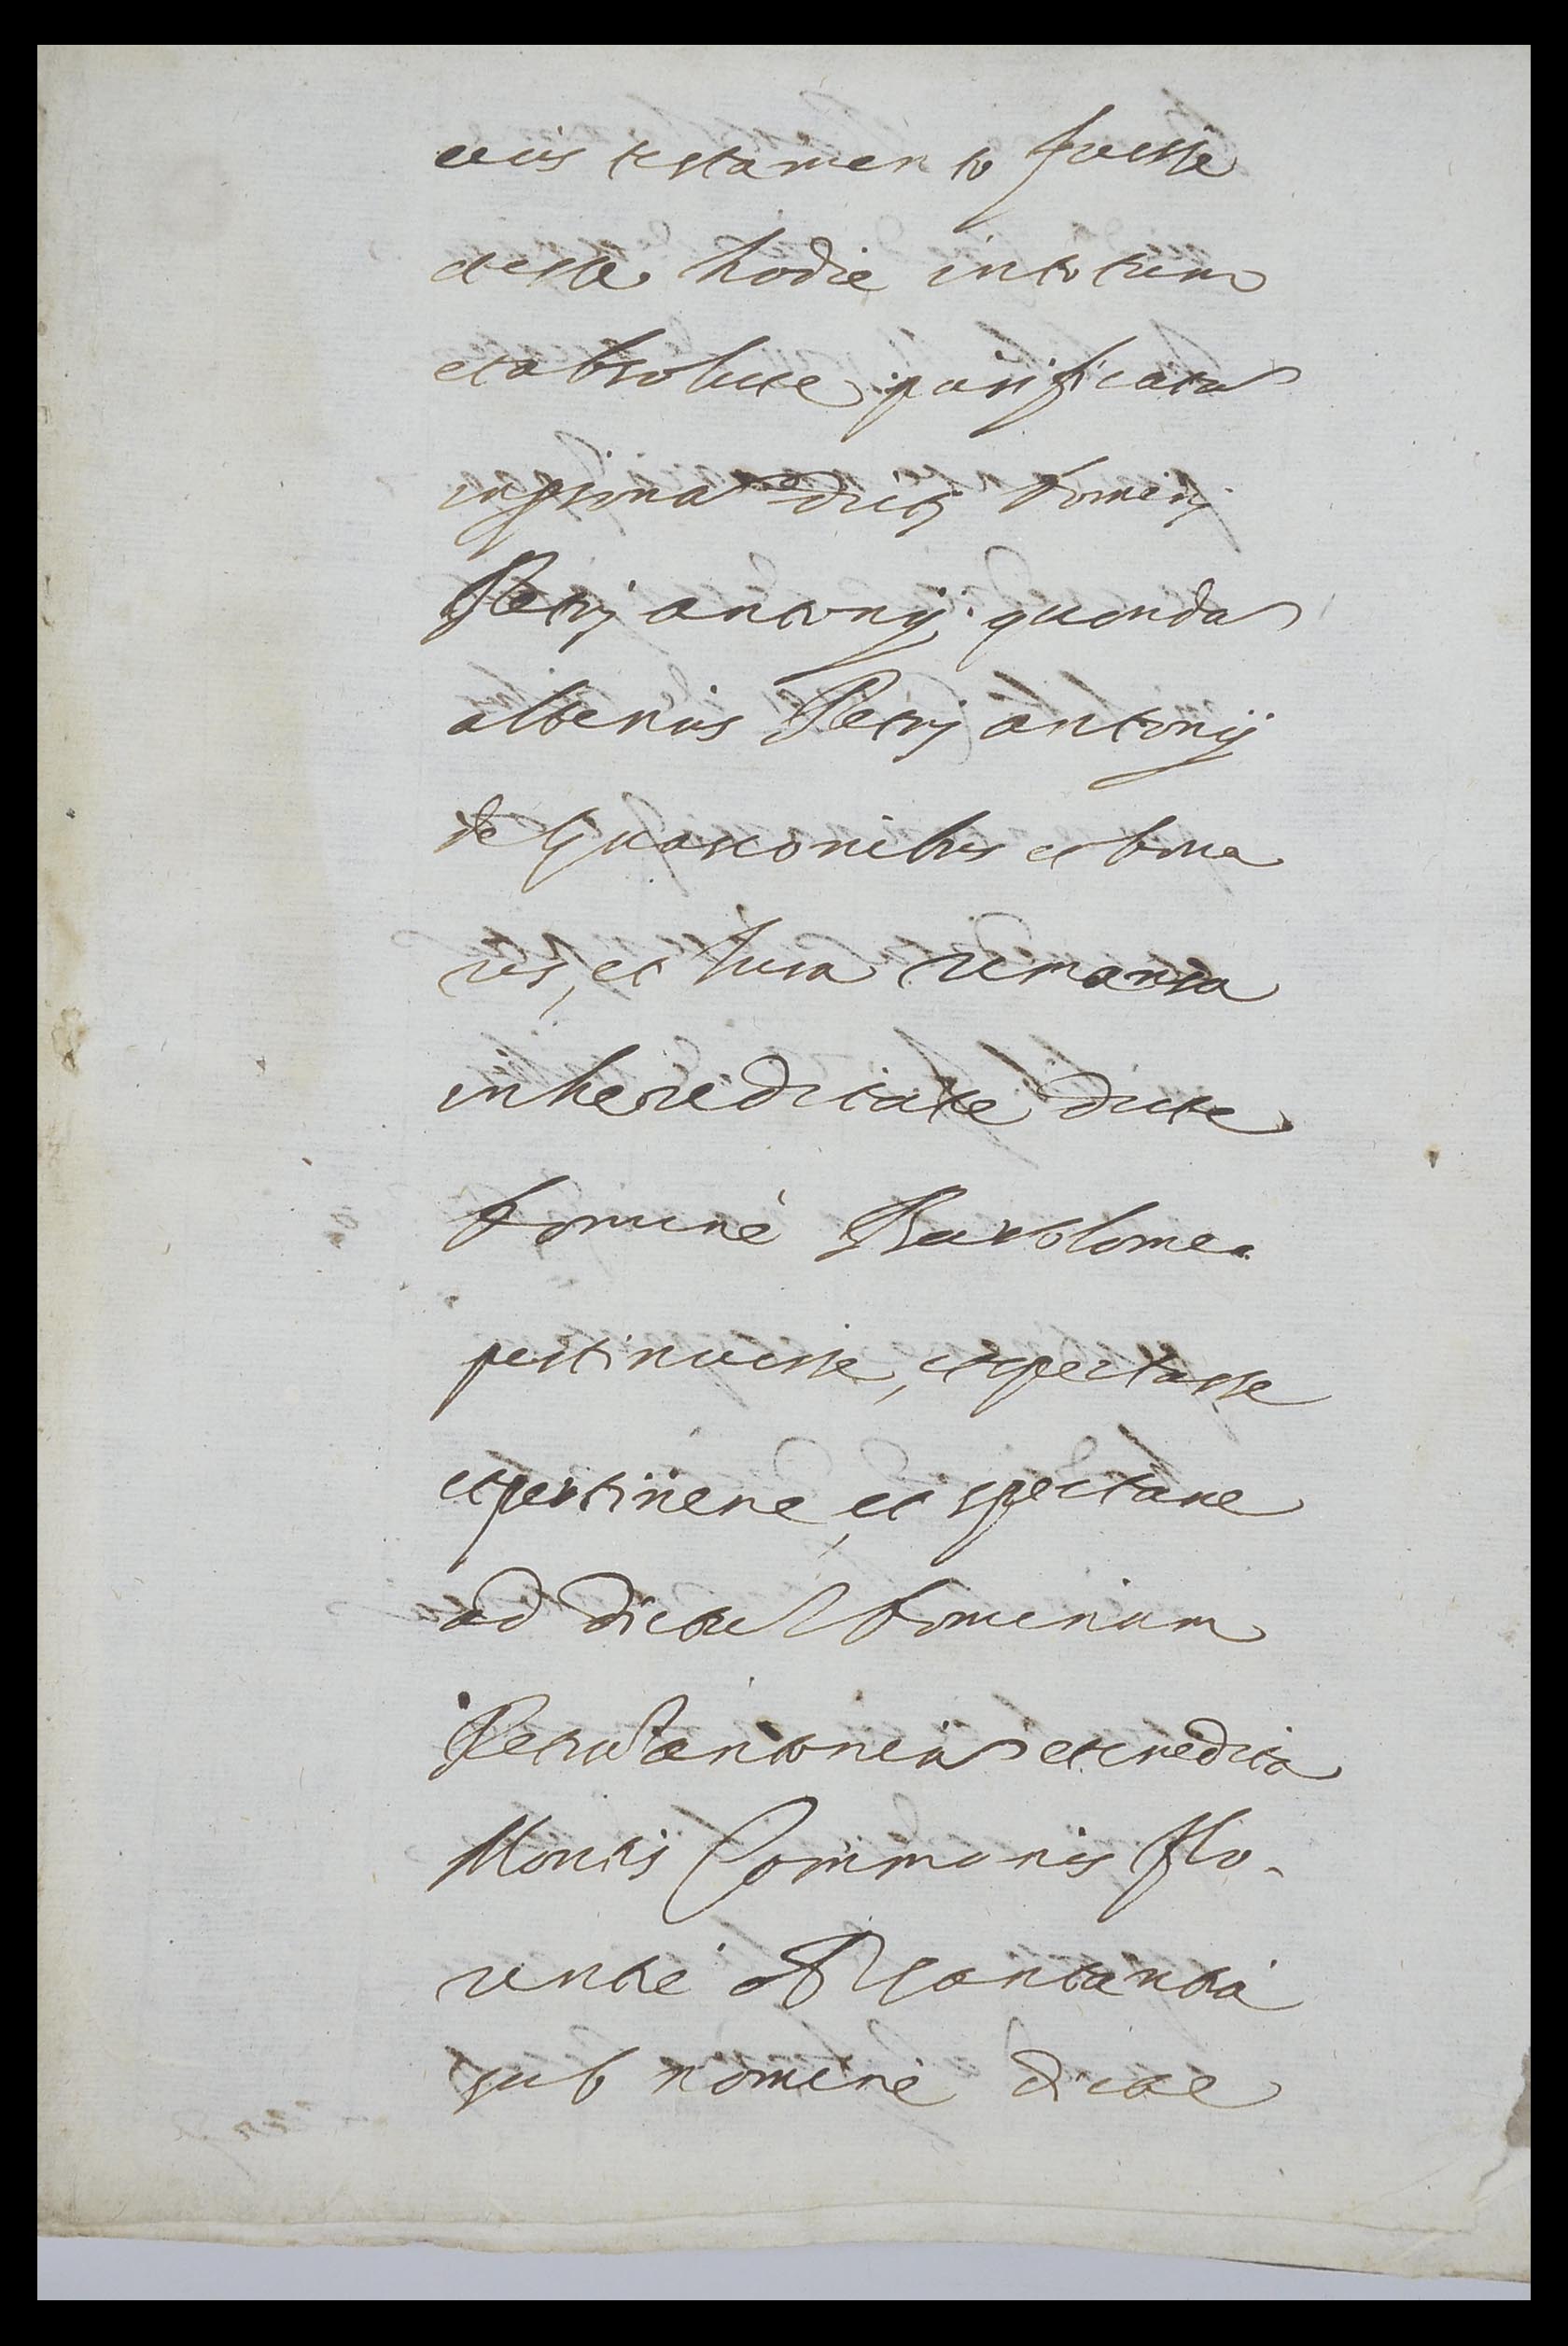 eius testamento fuisse
et esse hodie in totum
et absolute purificata
in persona dicti Domini
Petri antonij quonda
alterius Petri antonij
de Guasconibus et bona
res, et Iura remansa
in hereditate dicte
Domine Bartolomea
pertinuisse, et spectasse
et pertinere et spectare
ad dictu Dominum
Petru antoniu et credita
Montis Communis Flo-
rentie
sub nomine dicte